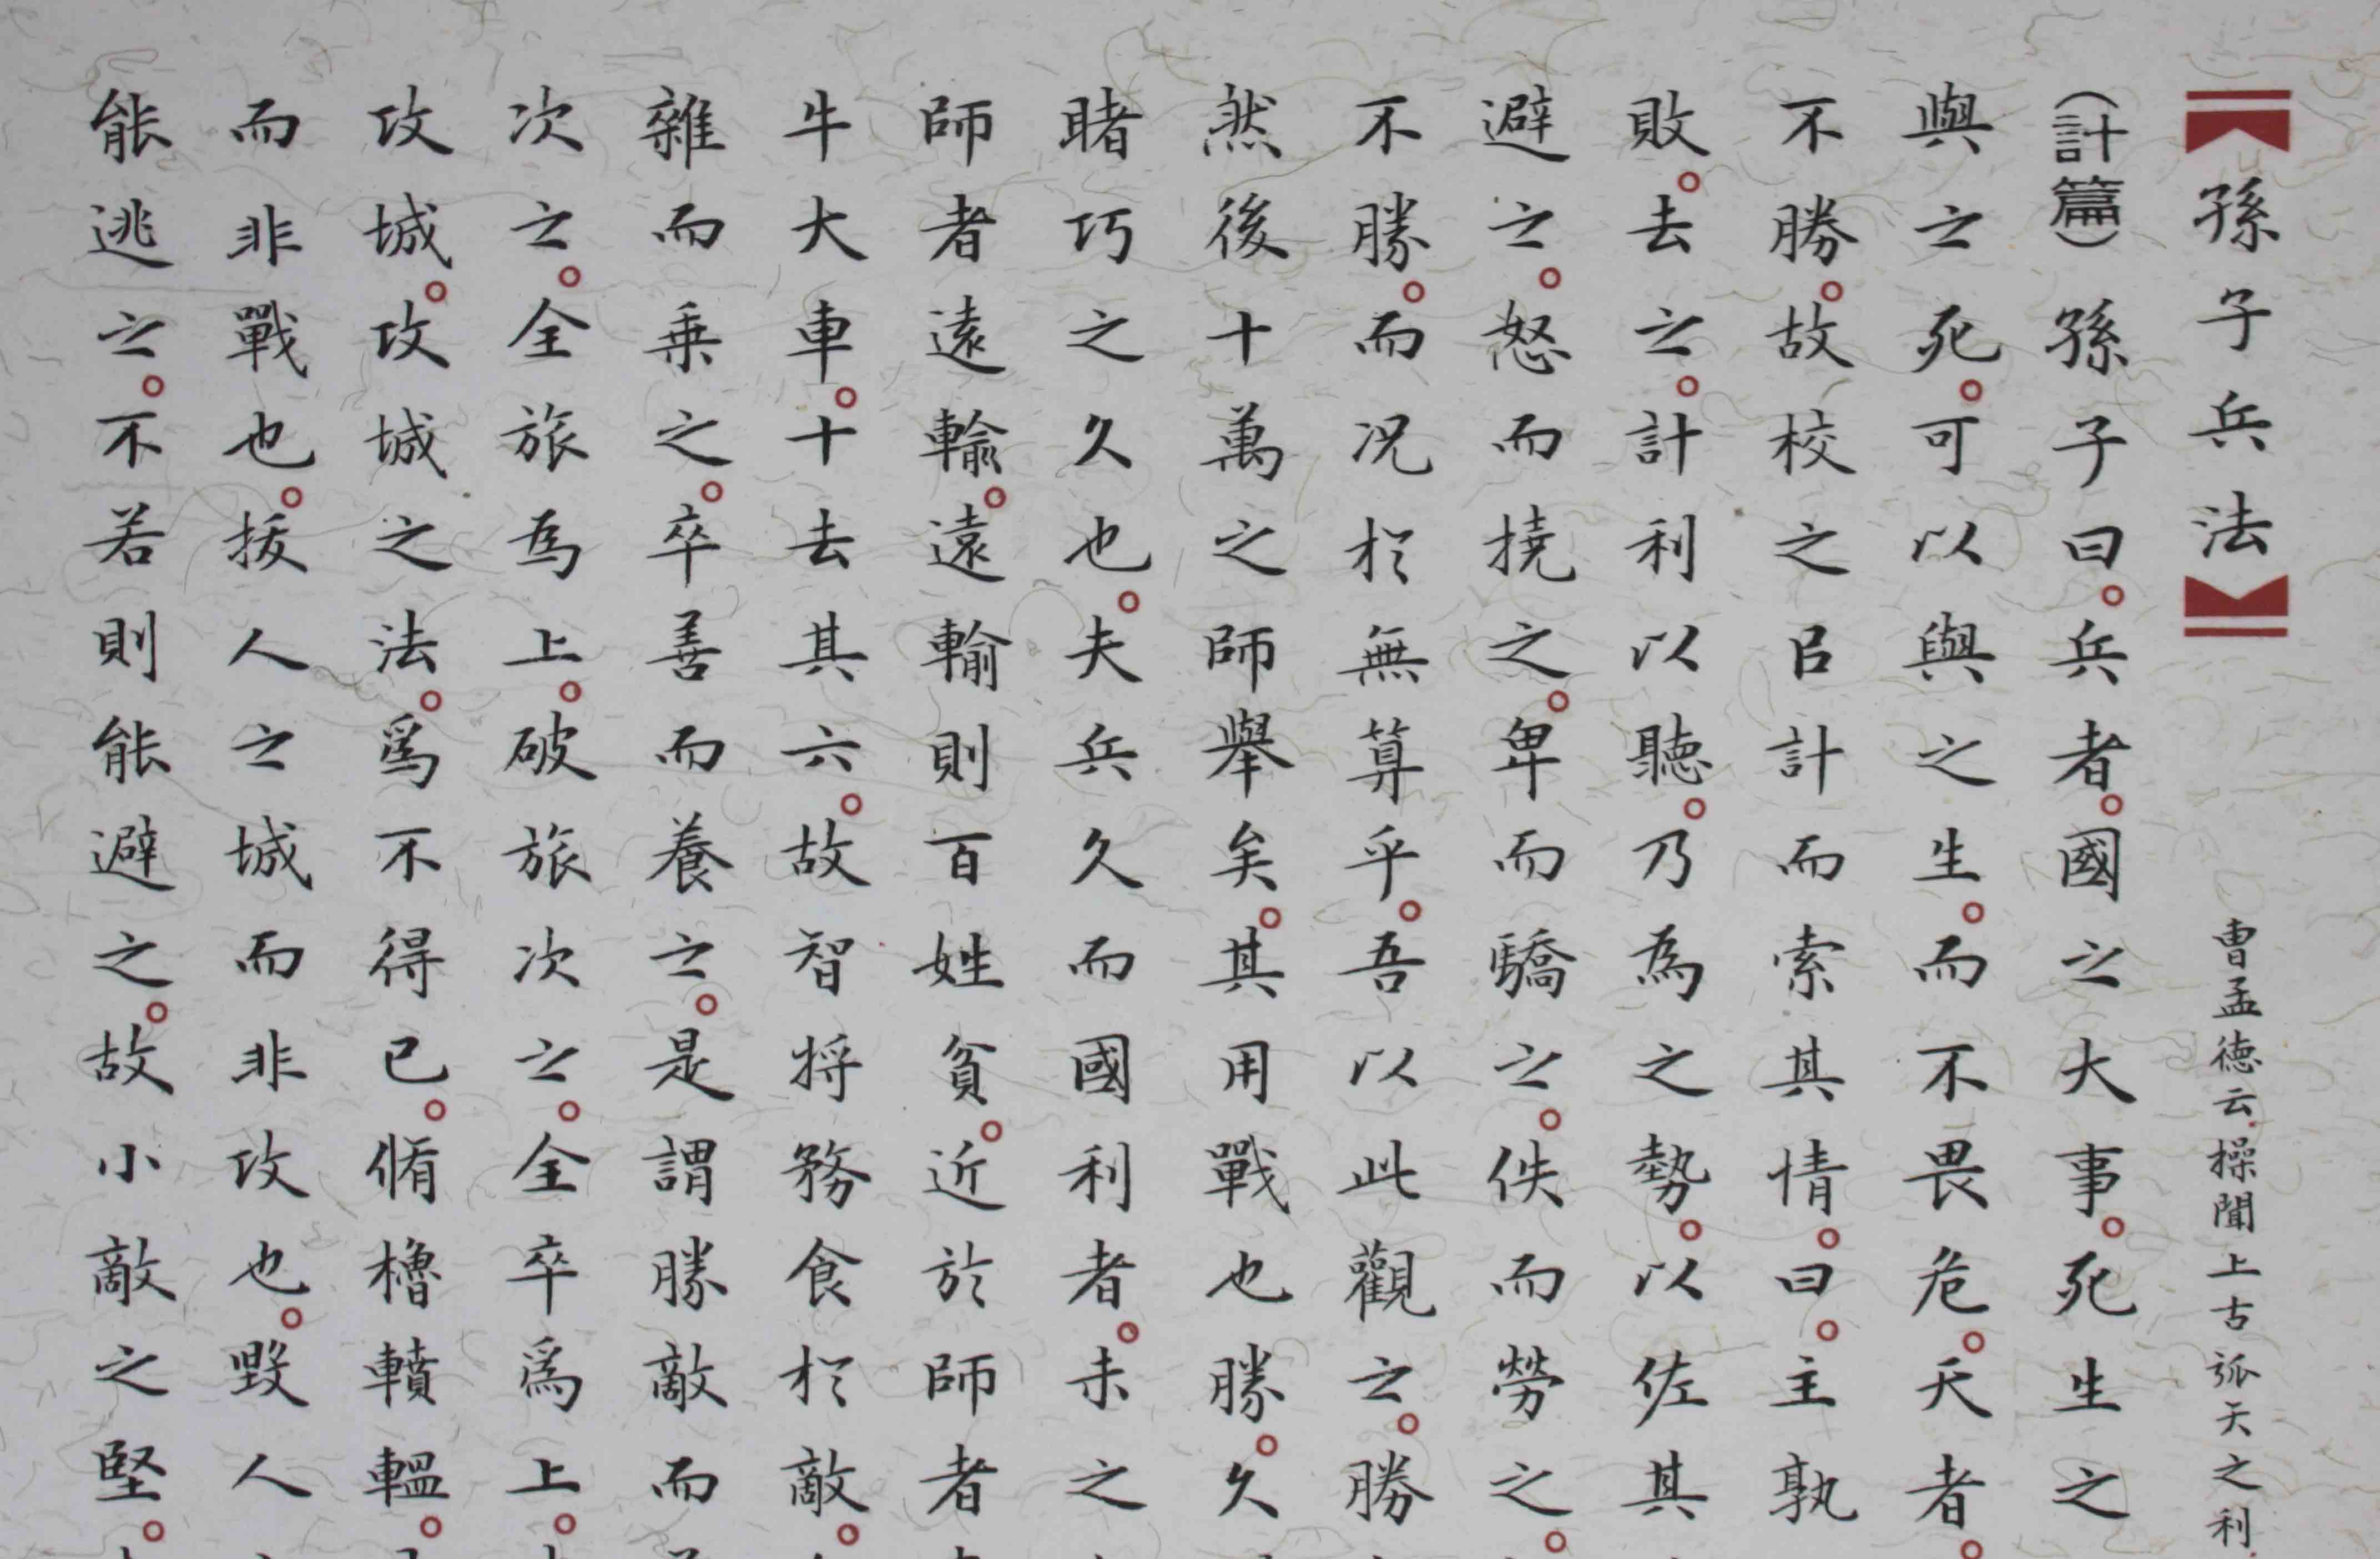 孫子兵法 曹孟德云操聞上古弧矢之利
(計篇)孫子曰。兵者。國之大事。死生之
與之死。可以與之生。而不畏危。天者。
不勝。故校之㠯計而索其情。曰。主孰
敗。去之。計利以聽。乃為之勢。以佐其
避之。怒而撓之。卑而驕之。佚而勞之。
不勝。而況於無算乎。吾以此觀之。勝
然後十萬之師舉矣。其用戰也勝。久
睹巧之久也。夫兵久而國利者。未之
師者遠輸。遠輸則百姓貧。近於師者
牛大車。十去其六。故智將務食於敵。
雜而乘之。卒善而養之。是謂勝敵而
次之。全旅為上。破旅次之。全卒爲上。
攻城。攻城之法。爲不得已。脩櫓轒轀。
而非戰也。拔人之城而非攻也。毀人
能逃之。不若則能避之。故小敵之堅。